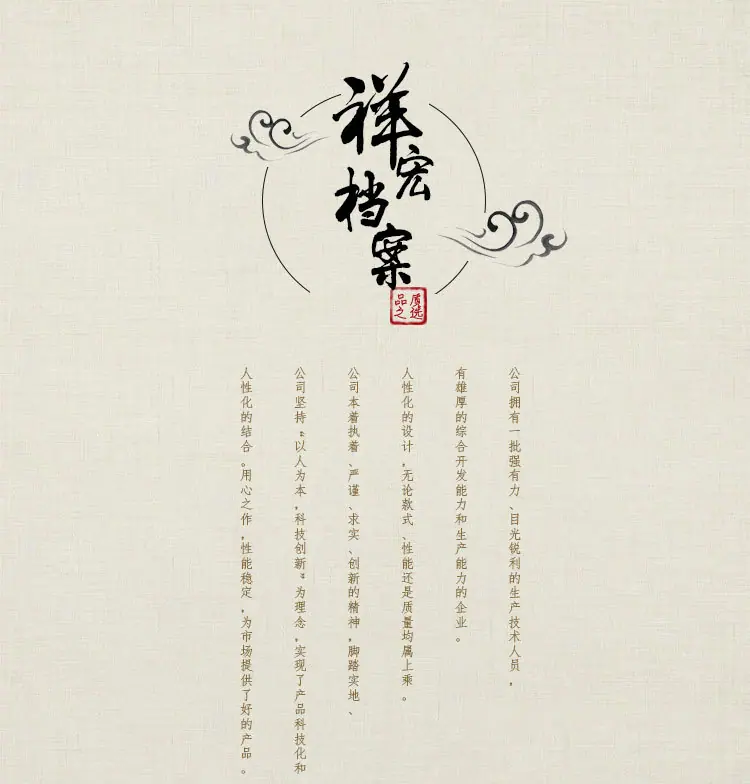 祥宏
档案
品质
之选
公司拥有一批强有力、目光锐利的生产技术人员，
有雄厚的综合开发能力和生产能力的企业。
人性化的设计，无论款式、性能还是质量均属上乘。
公司本着执着、严谨、求实、创新的精神，脚踏实地、
公司坚持“以人为本，科技创新”为理念，实现了产品科技化和
人性化的结合。用心之作，性能稳定，为市场提供了好的产品。